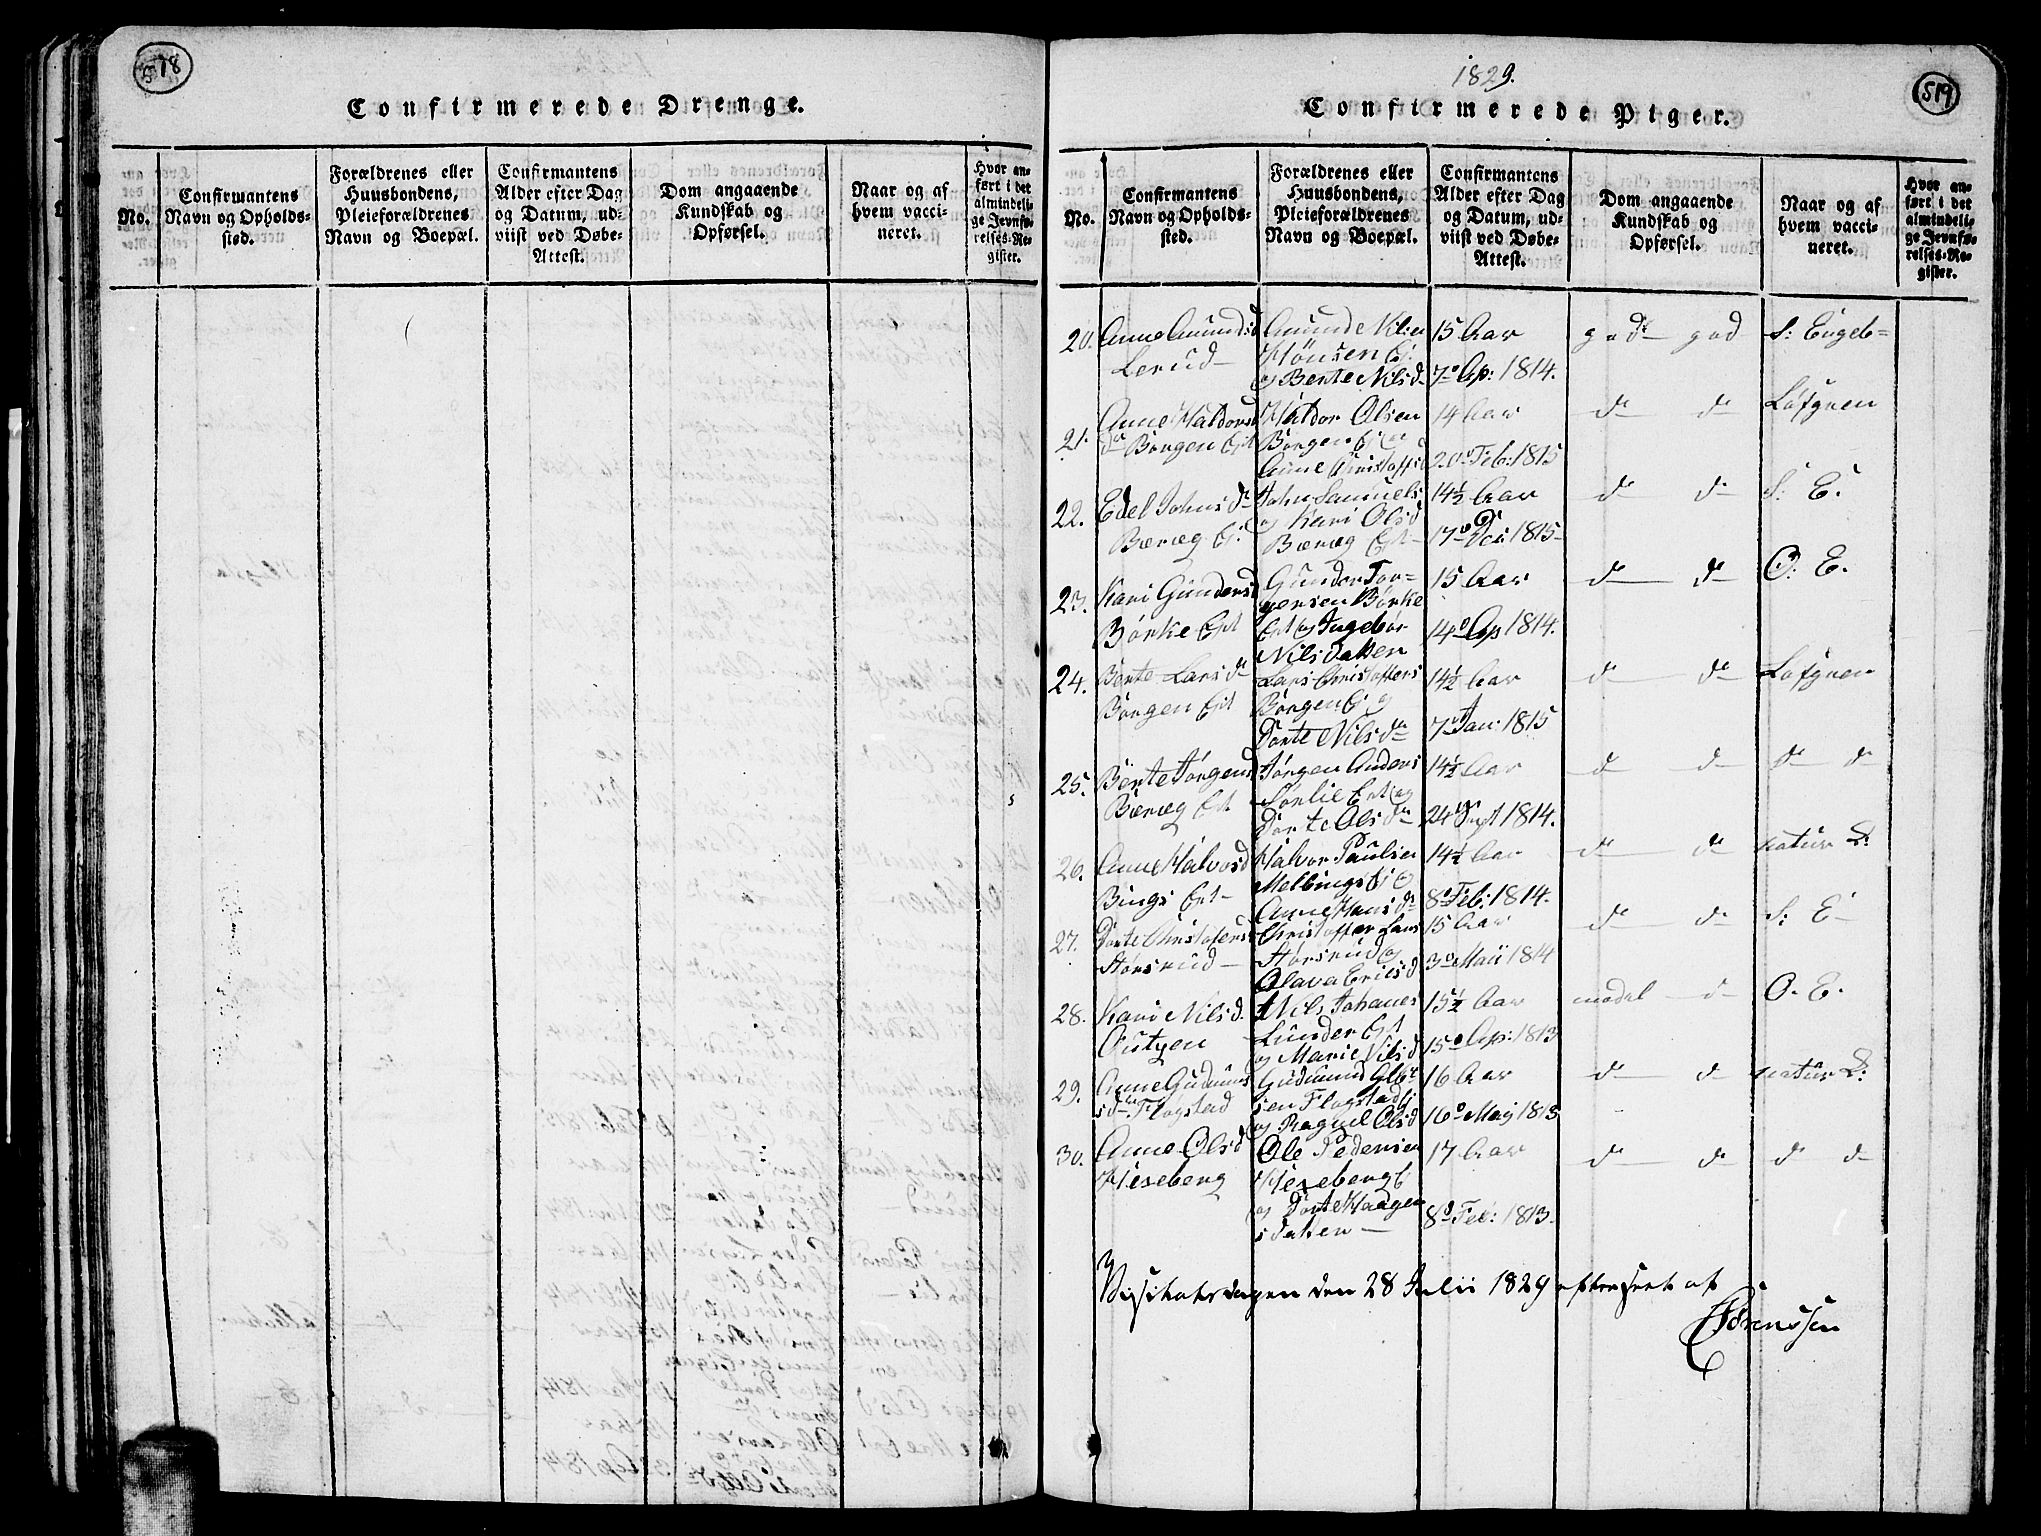 578
Confirmerede Drenge.
No.
Confirmantens
Navn og Opholds-
sted.
Forældrenes eller
Huusbondens,
Pleieforældrenes
Navn og Boepæl.
Confirmantens
Alder efter Dag
og Datum, ud-
viist ved Døbe-
Attest.
Dom angaaende
Kundskab og
Opførsel.
Naar og af
hvem vacci-
neret.
Hvor an-
ført i det
almindeli-
ge Jevnfø-
relses-Re-
gister.
1829.
519
Confirmerede Piger.
No.
Confirmantens
Navn og Opholds-
sted.
Forældrenes eller
Huusbondens,
Pleieforældrenes
Navn og Boepæl.
Confirmantens
Alder efter Dag
og Datum, ud-
viist ved Døbe-
Attest.
Dom angaaende
Kundskab og
Opførsel.
Naar og af
hvem vacci-
neret.
Hvor an-
ført i det
almindeli-
ge Jevnfø-
relses-Re-
gister.
20. Anne Amundsd
Lerud
Amund Nilsen
Hönsen Ei.
og Berte Nilsd
15 Aar
7de Ap: 1814.
godt god
S: Engeb=
21. Anne Haldors
dr Borgen Eit
Haldor Olsen
Borgen Ei og
Anne Christoffsd
14 Aar
20 Feb: 1815
do do
Løfgren
22. Edel Johnsdr
Bæreg Ei
John Samuels
og Kari Olsd
Bæreg Eit
14½ Aar
17 Dec 1815
do do
S: E.
23. Kari Gundersd
Børke Eit
Gunder Tor=
gersen Børke
Eit og Ingebor
Nilsdatter
15 Aar
14 Ap 1814.
do do
O: E.
24. Berte Larsdr
Borgen Eit
Lars Christoffers
Borgen Ei og
Dorte Nilsdr
14½ Aar
7 Jan: 1815
do do
Løfgren
25. Berte Jørgensd
Bæreg Eit
Jørgen Anders
Sørlie Eit og
Dorte Olsdr
14½ Aar
24 Sept 1814.
do do
do do
26. Anne Halvorsd
Bings Eit
Halvor Paulsen
Melbings Ei og
Anne Hansdr
14½ Aar
8 Feb: 1814.
do do
natur B:
27. Dorte Christofersd
Horsrud
Christoffer Lars
Horsrud og
Olava Ericsd
15 Aar
3 Maii 1814
do do
S: E
28. Kari Nilsd.
Outgen
Nils Johanes
Lunder Eit
og Marie Nilsd
15½ Aar
15 Ap: 1813
madel do
O. E.
29. Anne Gudmuns
sdr Flogstad
Gudmund
sen Flogstad Ei
og Ragnel Olsd
16 Aar
16 Maj 1813
do do
natur B:
30. Anne Olsd
Hexeberg
Ole Pedersen
Hexeberg Ei
og Dorte Haagen
sdatter
17 Aar
8 Feb: 1813.
do do
do do
Visitatsdagen den 28 Julii 1829 efterseet af
Sørenssen